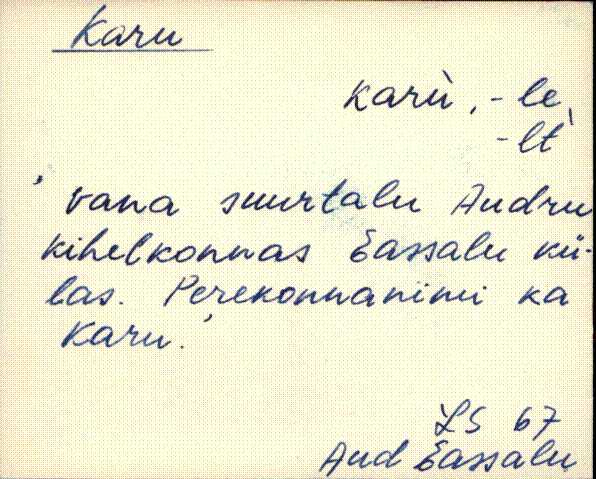 Karu
karù, -le,
-lt̀
'vana suurtalu Audru
kihelkonnas Eassalu kü-
las. Perekonnanimi ka
Karu.'
LS 67
Aud Eassalu